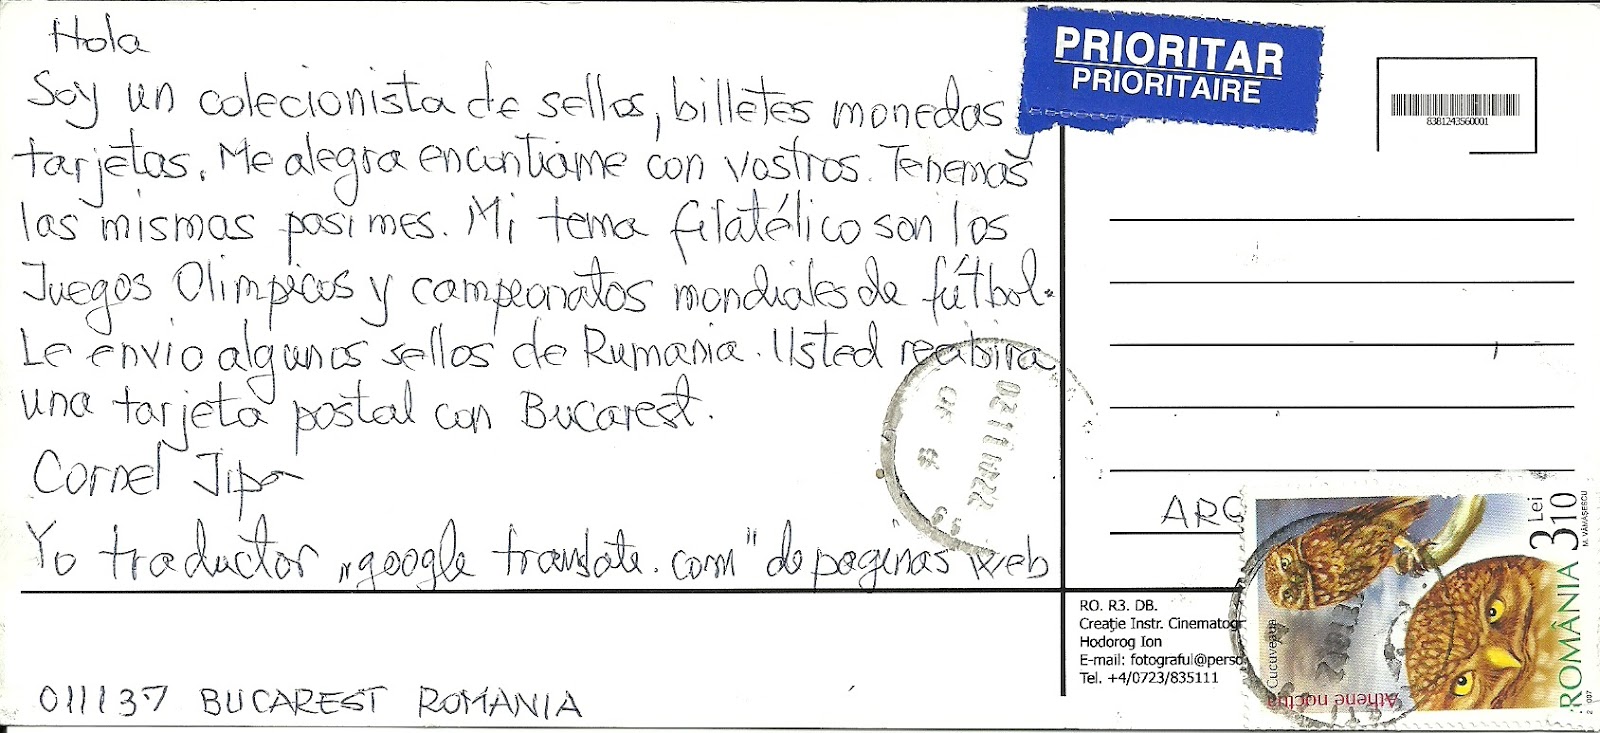 Hola
Soy un colecionista de sellos, billetes monedas
tarjetas. Me alegra encontrame con vostros. Tenemas
las mismas pasimes. Mi tema filatélico son los
Juegos Olimpicos y campeonatos mondiales de fútbol.
Le envio algunos sellos de Rumania. Usted recibira
una tarjeta postal con Bucarest.
Cornel Jipa
Yo traductor „google translate.com" de paginas web
011137 BUCAREST ROMANIA
PRIORITAR
PRIORITAIRE
8381243560001
ARG
RO. R3. DB.
Creaţie Instr. Cinematogr
Hodorog Ion
E-mail: fotograful@perso
Tel. +4/0723/835111
Cucuveaua
Athene noctua
ROMÂNIA
3 Lei
310
M. VĂMĂŞESCU
2007